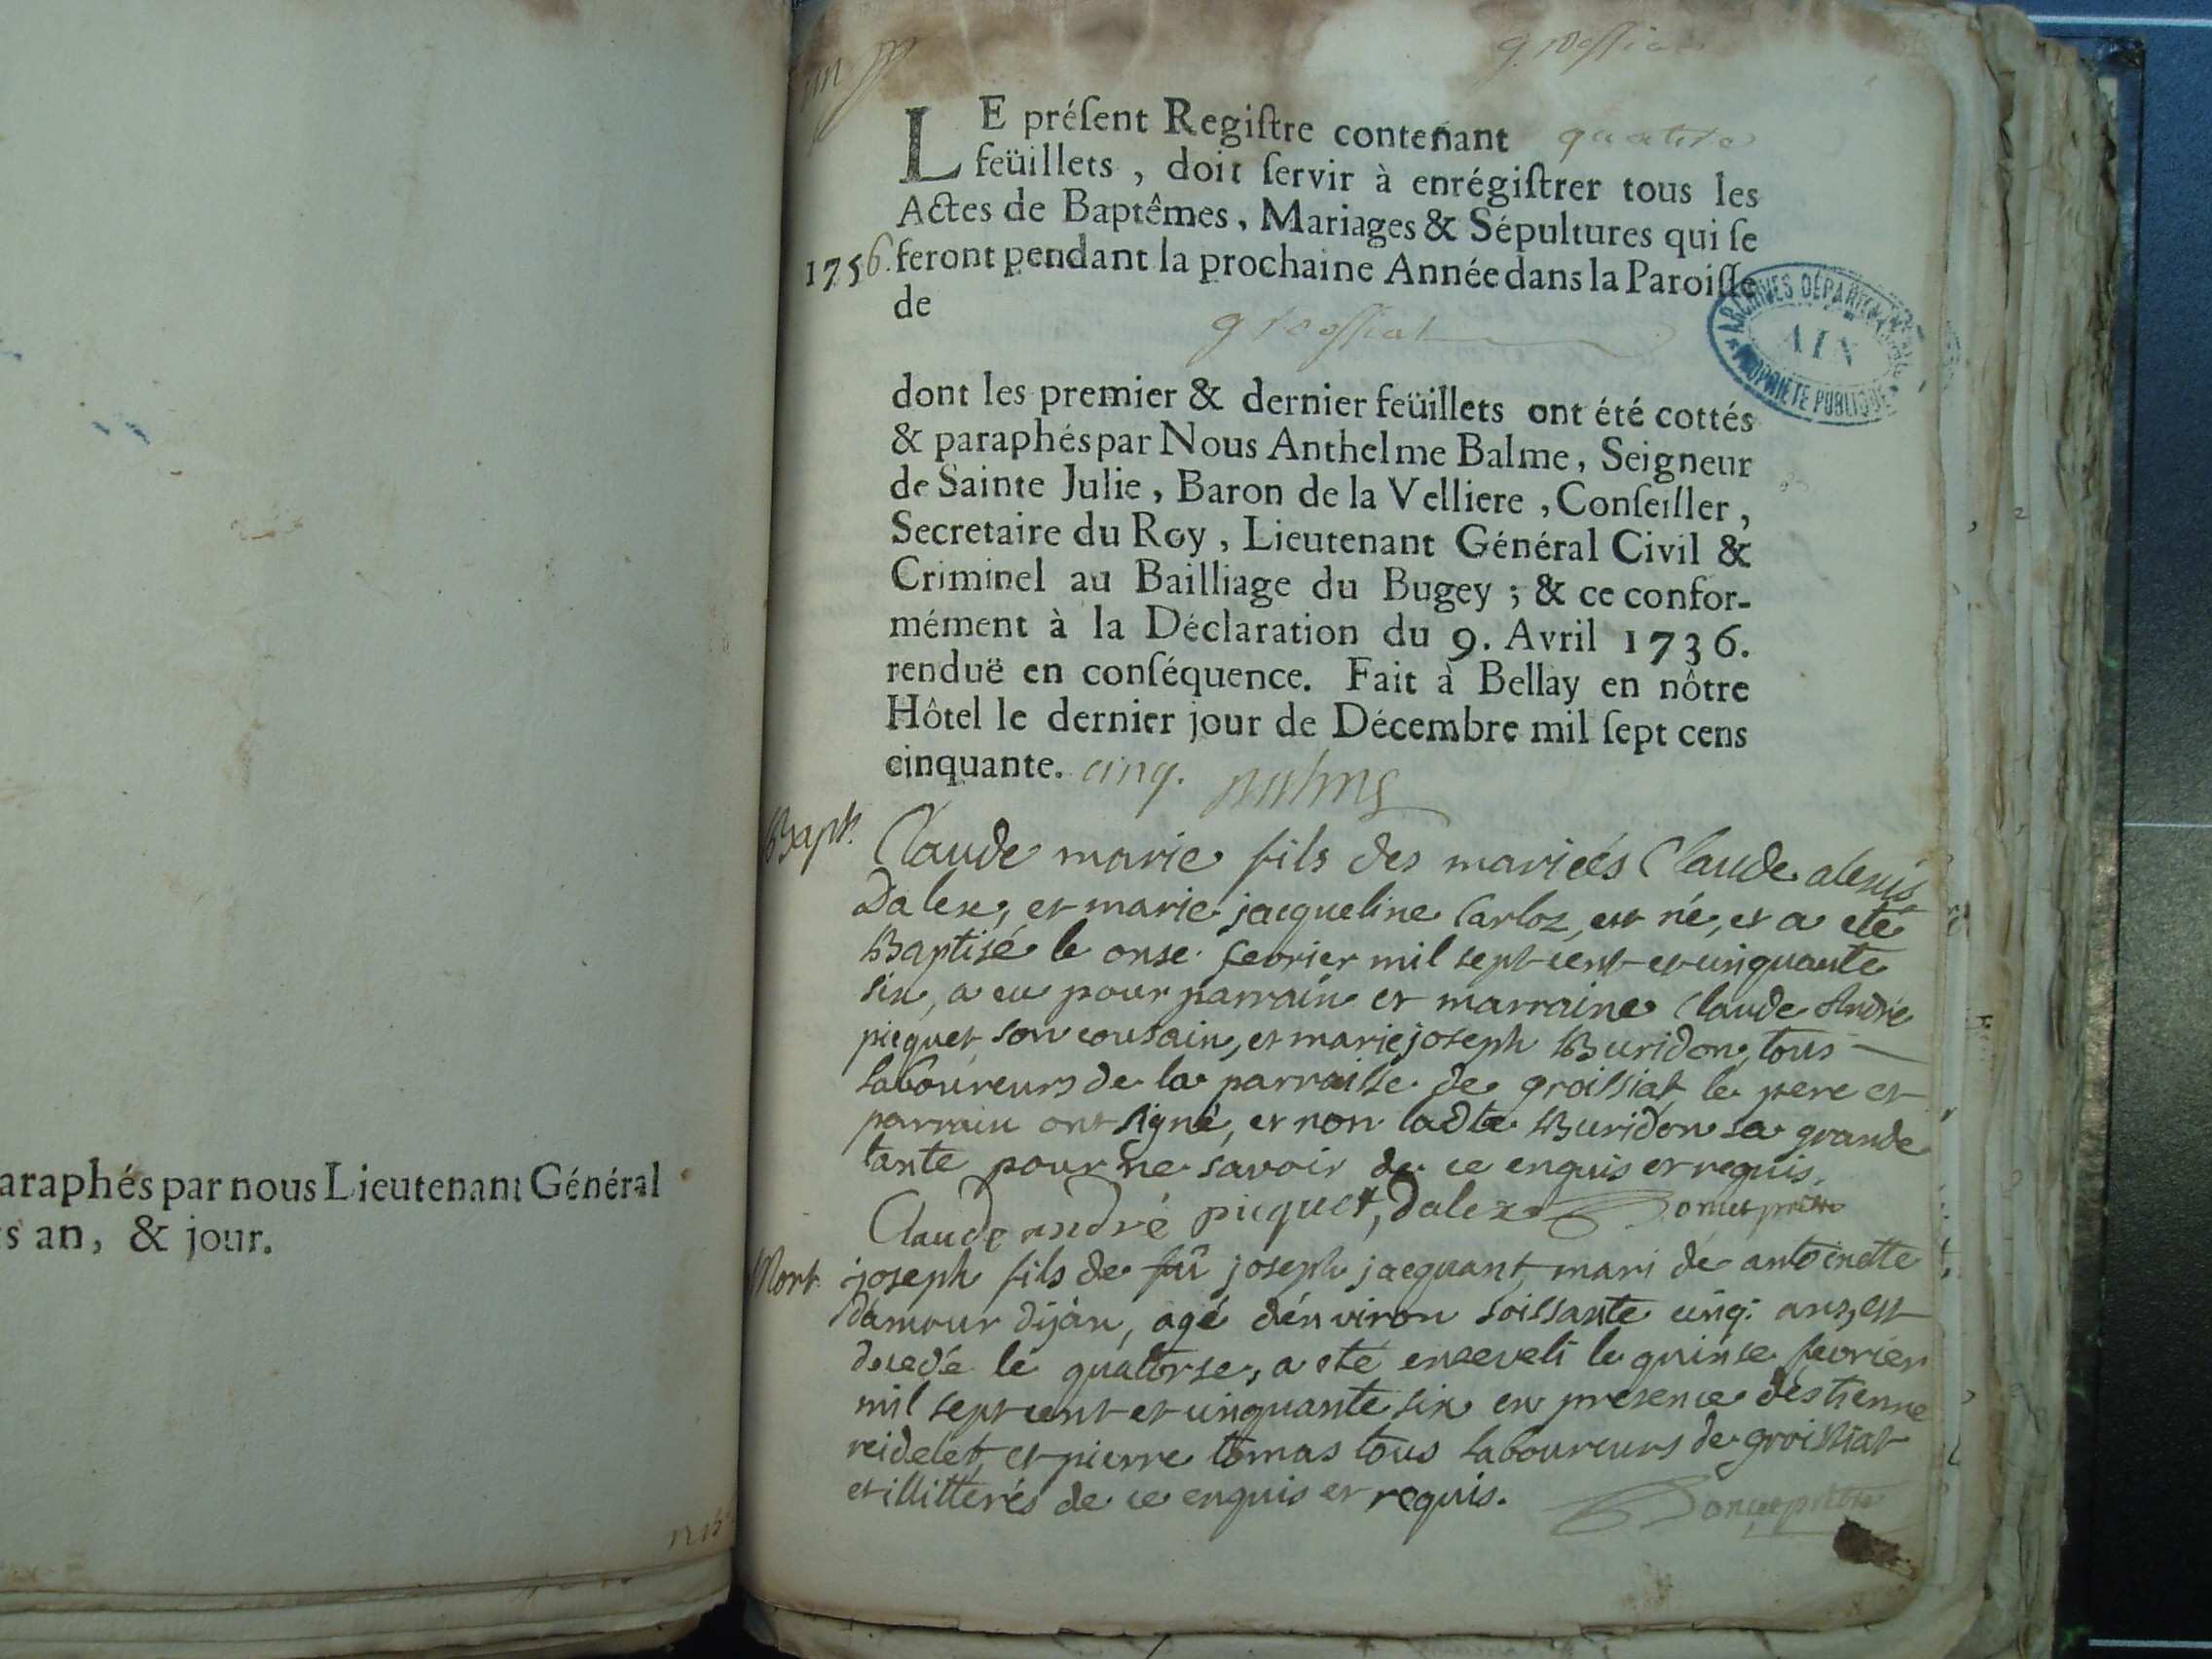 araphés par nous Lieutenant Général
s an, & jour.
LE préſent Regiſtre contenant quatre
feüillets, doit ſervir à enrégiſtrer tous les
Actes de Baptêmes, Mariages & Sépultures qui ſe
1756. feront pendant la prochaine Année dans la Paroiſſe
de
groissiat
ARCHIVES DÉPARTEMENTALES
AIN
PROPRIÉTÉ PUBLIQUE
dont les premier & dernier feüillets ont été cottés
& paraphés par Nous Anthelme Balme, Seigneur
de Sainte Julie, Baron de la Velliere, Conſeiller,
Secretaire du Roy, Lieutenant Général Civil &
Criminel au Bailliage du Bugey ; & ce confor-
mément à la Déclaration du 9. Avril 1736.
renduë en conſéquence. Fait à Bellay en nôtre
Hôtel le dernier jour de Décembre mil ſept cens
cinquante. cinq. Balme
Bapt. Claude marie fils des mariées Claude alexis
Dalex, et marie jacqueline Carloz, est né, et a eté
Baptisé le onse fevrier mil sept cent et cinquante
six, a eu pour parrain et marraine Claude André
picquet son cousain, et marie joseph Buridon, tous
laboureurs de la parroisse de groissiat le pere et
parrain ont signé, et non ladte Buridon sa grande
tante pour ne savoir de ce enquis et requis.
Claude andré picquet, Dalex Doncet prêtre
Mort. joseph fils de fû joseph jacquant, mari de antoinette
Damour dijàn, agé dénviron soissante cinq. ans, est
decedé le quatorse, a eté enseveli le quinse fevrier
mil sept cent et cinquante six en presence destienne
reidelet, et pierre tomas tous laboureurs de groissiat
et illitterés de ce enquis et requis. Doncet prêtre